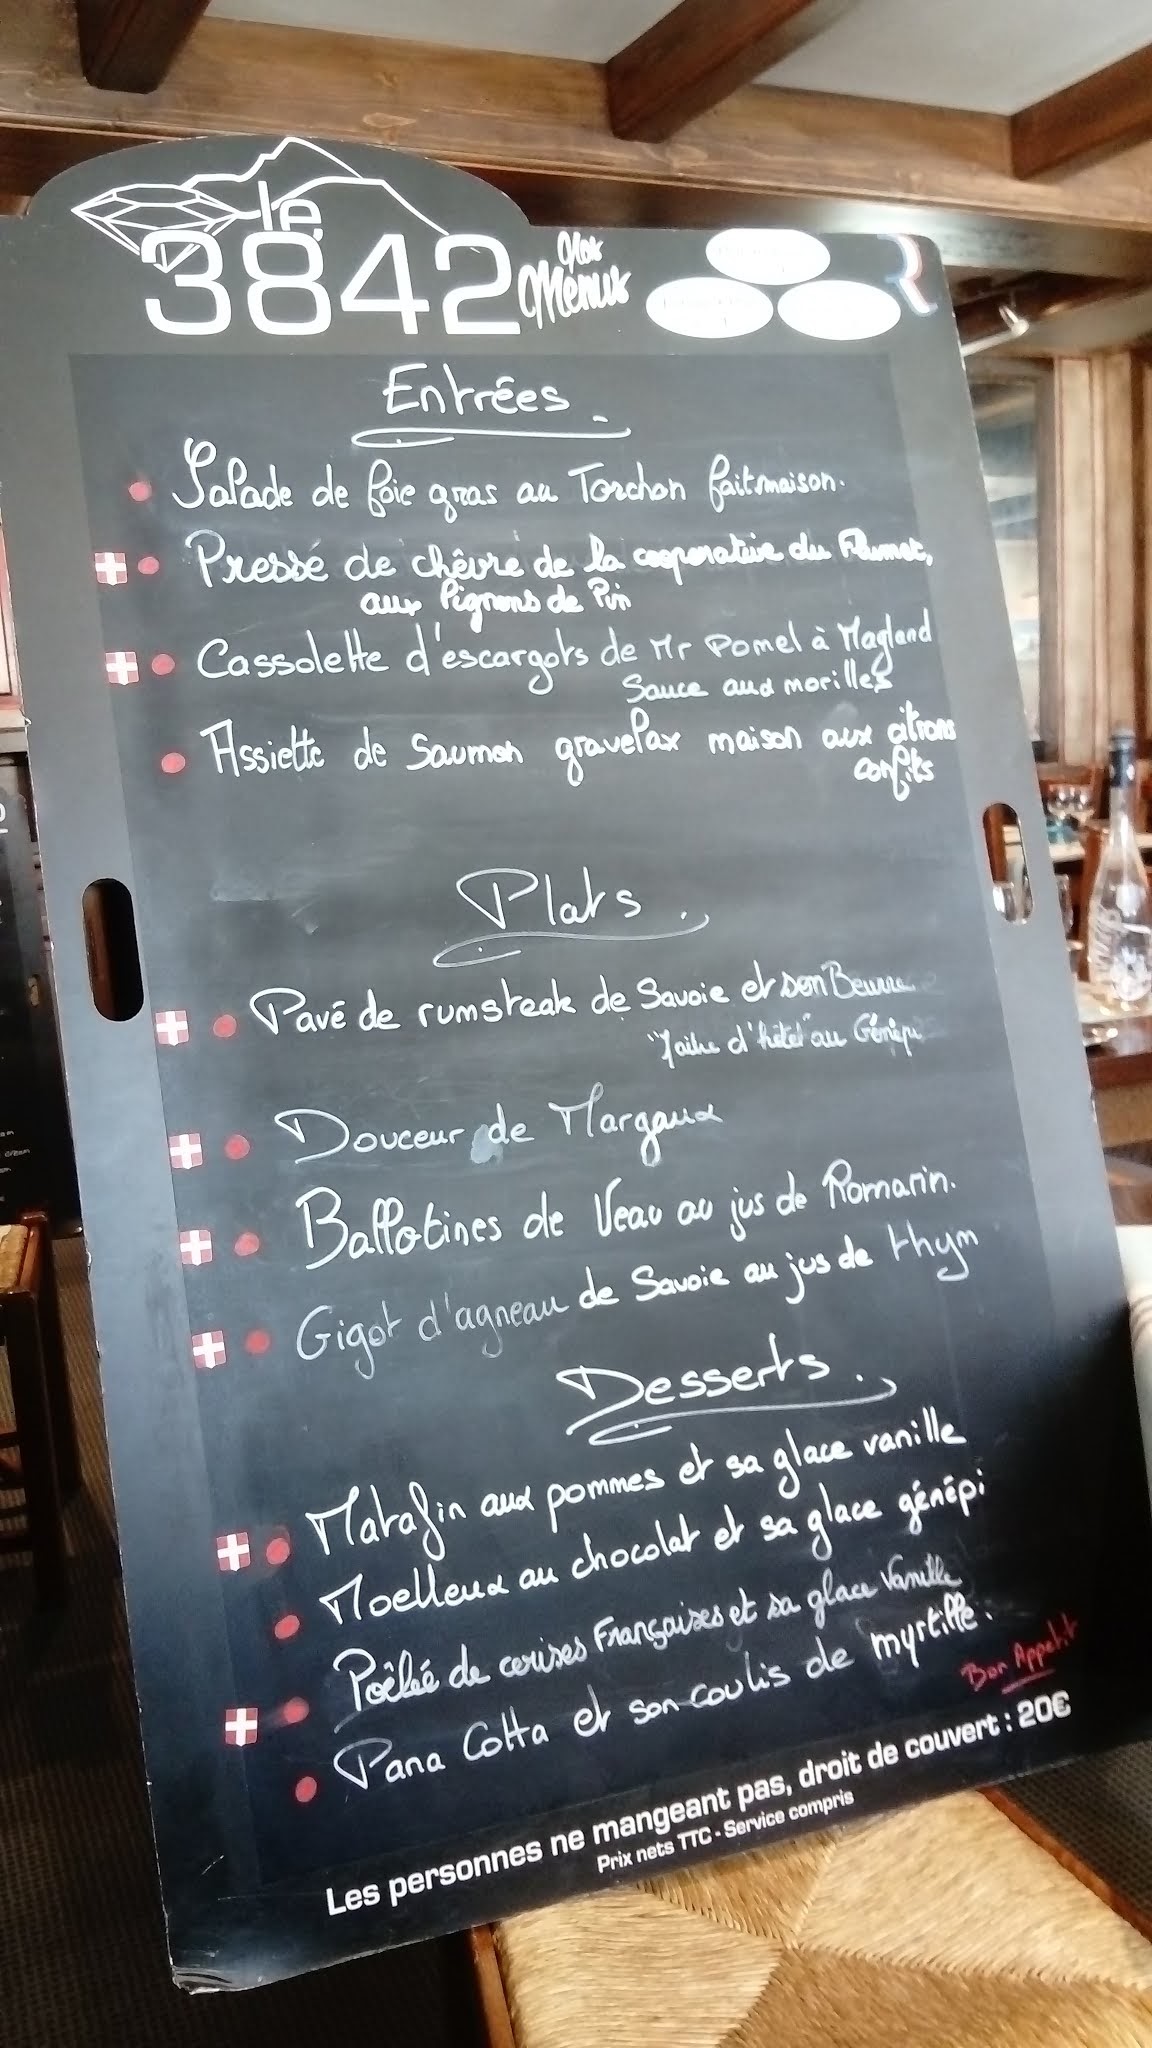 le
3842
Nos
Menus
Entrées
Salade de foie gras au Torchon fait maison.
Pressé de chèvre de la cooperative du Flumet,
aux Pignons de Pin
Cassolette d'escargots de Mr Pomel à Magland
Sauce aux morilles
Assiette de Saumon gravelax maison aux citrons
confits
Plats
Pavé de rumsteak de Savoie et son Beurre
"Maitre d'hôtel" au Génépi
Douceur de Margaux
Ballotines de Veau au jus de Romarin.
Gigot d'agneau de Savoie au jus de thym
Desserts
Matafin aux pommes et sa glace vanille
Moelleux au chocolat et sa glace génépi
Poêlée de cerises Françaises et sa glace Vanille
Pana Cotta et son coulis de myrtille.
Bon Appetit
Les personnes ne mangeant pas, droit de couvert : 20€
Prix nets TTC - Service compris